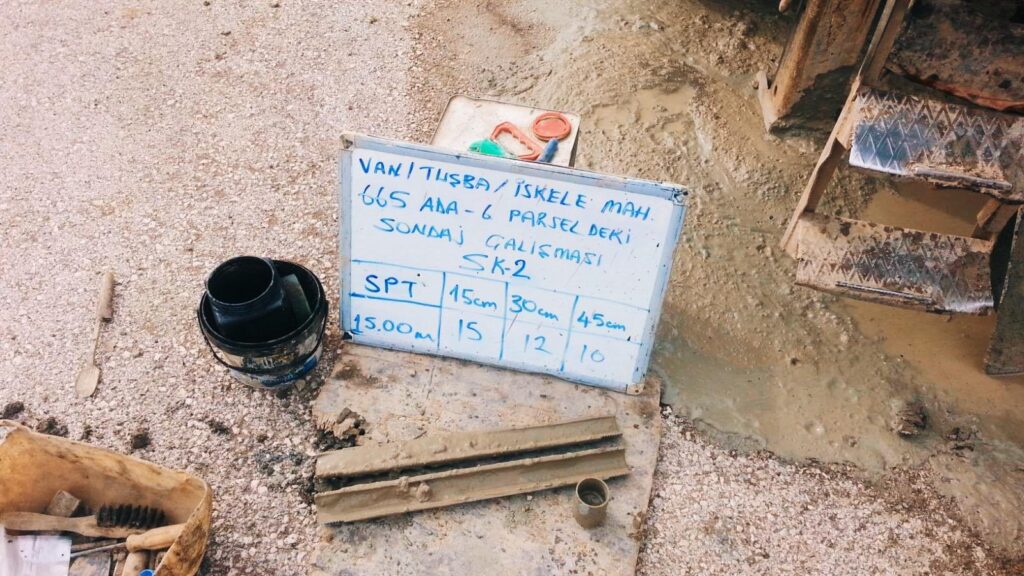 VAN/TUŞBA/İSKELE MAH.
665 ADA-6 PARSELDEKİ
SONDAJ ÇALIŞMASI
SK-2
SPT 15cm 30cm 45cm
15.00m 15 12 10